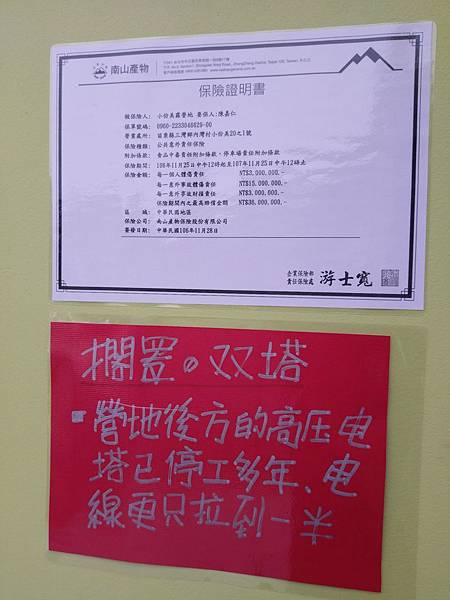 南山產物
保險證明書
被保險人: 小份美露營地 要保人:陳嘉仁
保單號碼: 0960-2233046629-00
營業處所: 苗栗縣三灣鄉內灣村小份美20之1號
保險種類: 公共意外責任保險
附加條款: 食品中毒責任附加條款, 停車場責任附加條款
保險期間: 106年11月25日中午12時起至107年11月25日中午12時止
保險金額: 每一個人體傷責任 NT$3,000,000.-
每一意外事故體傷責任 NT$15,000,000.-
每一意外事故財損責任 NT$3,000,000.-
保險期間內之最高賠償金額 NT$36,000,000.-
區 域: 中華民國地區
保險公司: 南山產物保險股份有限公司
簽發日期: 中華民國106年11月28日
企業保險部
責任保險處 游士寬
擱置。双塔
營地後方的高压电
塔已停工多年、电
線更只拉到一半